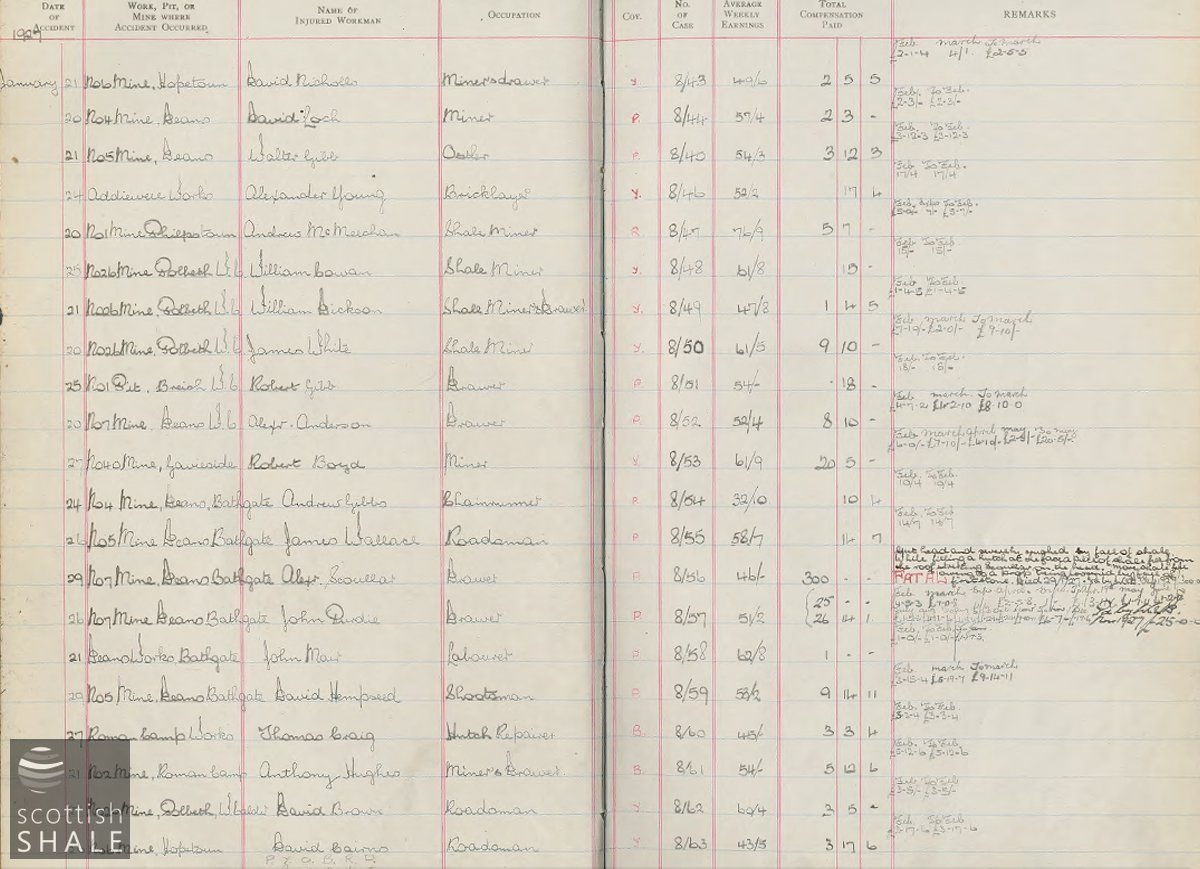 DATE OF ACCIDENT WORK, PIT, OR MINE WHERE ACCIDENT OCCURRED. NAME OF INJURED WORKMAN OCCUPATION COY. NO. OF CASE AVERAGE WEEKLY EARNINGS TOTAL COMPENSATION PAID REMARKS
1927
Feb. March To March
£2-1-4 4/1 £2-5-5
January 21 No6 Mine, Hopetoun David Nicholls Miner's drawer Y. 8/43 49/6 2 5 5
Feb. To Feb.
£2-3/- £2-3/-
20 No4 Mine, Deans David Loch Miner P. 8/44 57/4 2 3 -
Feb. To Feb.
£3-12-3 £3-12-3
21 No5 Mine, Deans Walter Gibb Ostler P. 8/40 54/3 3 12 3
Feb. To Feb.
17/4 17/4
24 Addiewell Works Alexander Young Bricklayer Y. 8/46 52/2 17 4
Feb. To Feb.
20 No1 Mine Philpstoun Andrew McMeechan Shale Miner R. 8/47 76/9 5 7 -
Feb To Feb
15/- 15/-
25 No26 Mine Polbeth W.C. William Cowan Shale Miner Y. 8/48 61/8 15 -
Feb To Feb
£1-4-5 £1-4-5
21 No26 Mine, Polbeth W.C. William Dickson Shale Miner's Drawer Y. 8/49 47/8 1 4 5
Feb March To March
£7-10/- £2-0/- £9-10/-
20 No26 Mine, Polbeth W.C. James White Shale Miner Y. 8/50 61/5 9 10 -
Feb. To Feb.
18/- 18/-
25 No1 Pit. Breich W.C. Robert Gibb Drawer P. 8/51 54/- 18 -
Feb March To March
£4-7-2 £4-2-10 £8-10-0
20 No7 Mine. Deans W.C. Alexr. Anderson Drawer P. 8/52 52/4 8 10 -
Feb March April May To May
£6-0/- £7-10/- £20-5/-
27 No40 Mine, Gavieside Robert Boyd Miner Y 8/53 61/9 20 5 -
Feb. To Feb.
10/4 10/4
24 No4 Mine, Deans, Bathgate Andrew Gibbs Chainrunner P. 8/54 32/10 10 4
Feb. To Feb
14/7 14/7
26 No5 Mine Deans Bathgate James Wallace Roadsman P. 8/55 58/7 14 7
Cut head and severely crushed by fall of shale
While filling a hutch at the face a piece of shale fell from
the roof striking Scoullar on the head,
29 No7 Mine Deans Bathgate Alexr. Scoullar Drawer P. 8/56 46/- 300 - - FATAL
Feb. March
26 No7 Mine Deans Bathgate John Durdie Drawer P. 8/57 51/2 25 - - 26 14 1
Feb To Feb
£1-0/- £1-0/-
21 Deans Works Bathgate John Mair Labourer P. 8/58 62/8 1 - -
Feb March To March
£3-15-4 £5-19-7 £9-14-11
29 No5 Mine, Deans Bathgate David Hempseed Shootsman P. 8/59 58/2 9 14 11
Feb. To Feb.
£3-3-4 £3-3-4
27 Roman Camp Works Thomas Craig Hutch Repairer B. 8/60 45/- 3 3 4
Feb. To Feb.
£5-12-6 £5-12-6
21 No2 Mine, Roman Camp Anthony Hughes Miner's Drawer. B. 8/61 54/- 5 12 6
Feb To Feb
£3-5/- £3-5/-
Mine, Polbeth, W. Calder David Brown Roadsman Y 8/62 60/4 3 5 -
Feb To Feb
£3-17-6 £3-17-6
Mine, Hopetoun David Cairns Roadsman Y 8/63 43/5 3 17 6
scottish
SHALE